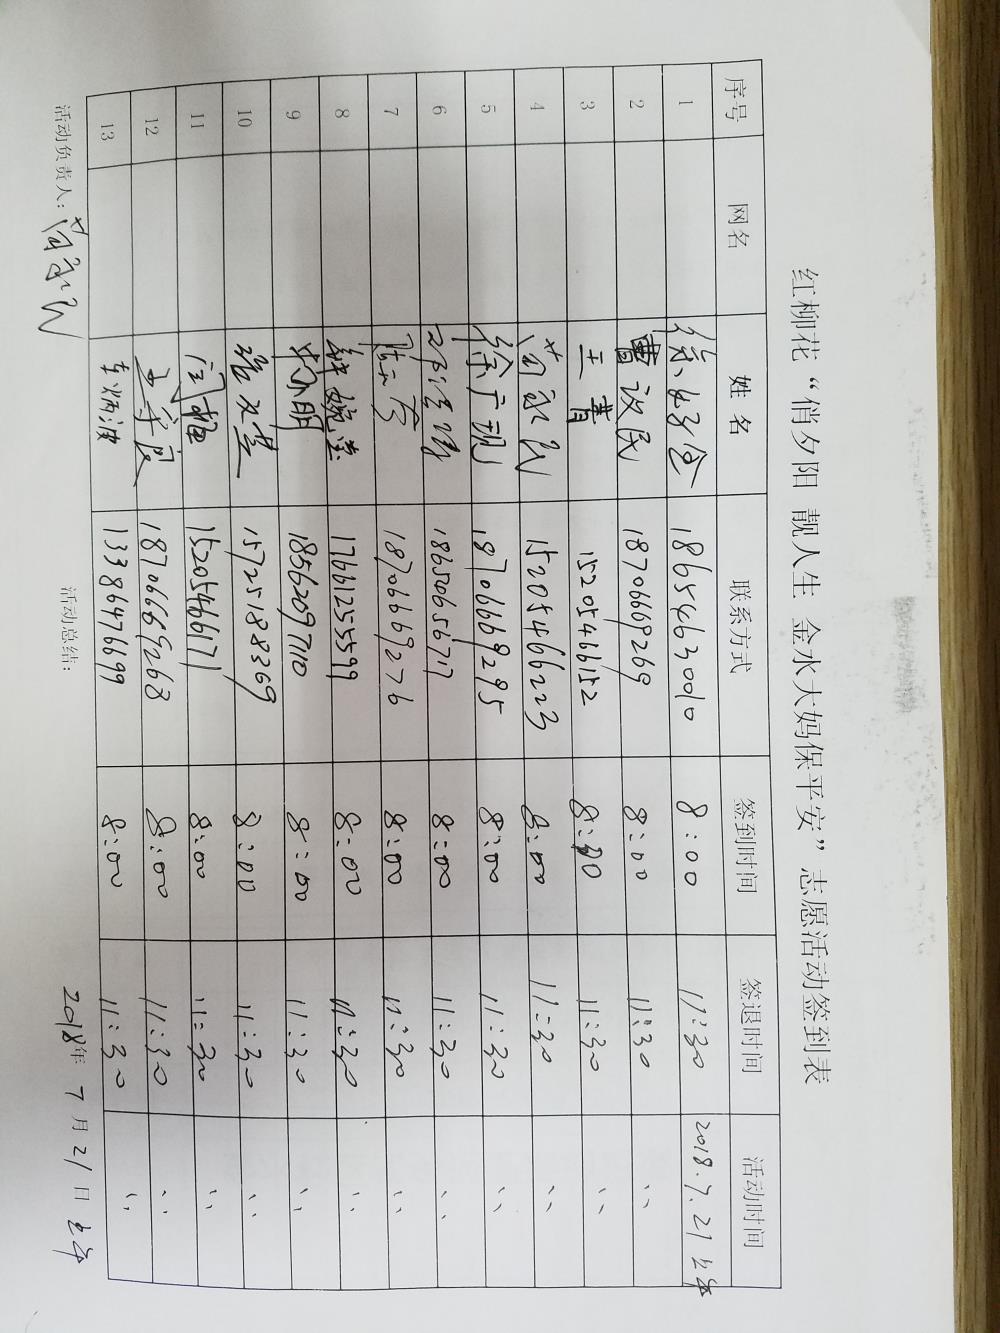 红柳花“俏夕阳 靓人生 金水大妈保平安”志愿活动签到表
序号 网名 姓名 联系方式 签到时间 签退时间 活动时间
1 18654630010 8:00 11:30 2018.7.21 上午
2 曹议民 18706669269 8:00 11:30 〃
3 王青 15205466152 8:00 11:30 〃
4 苟永民 15205466223 8:00 11:30 〃
5 徐广现 18706669295 8:00 11:30 〃
6 18650656717 8:00 11:30 〃
7 18706669276 8:00 11:30 〃
8 韩婉莹 17661255599 8:00 11:30 〃
9 18562097110 8:00 11:30 〃
10 15725188369 8:00 11:30 〃
11 闫梅 15205466171 8:00 11:30 〃
12 18706669268 8:00 11:30 〃
13 李炳波 13386476699 8:00 11:30 〃
活动负责人：苟永民 活动总结： 2018年 7月21日 上午